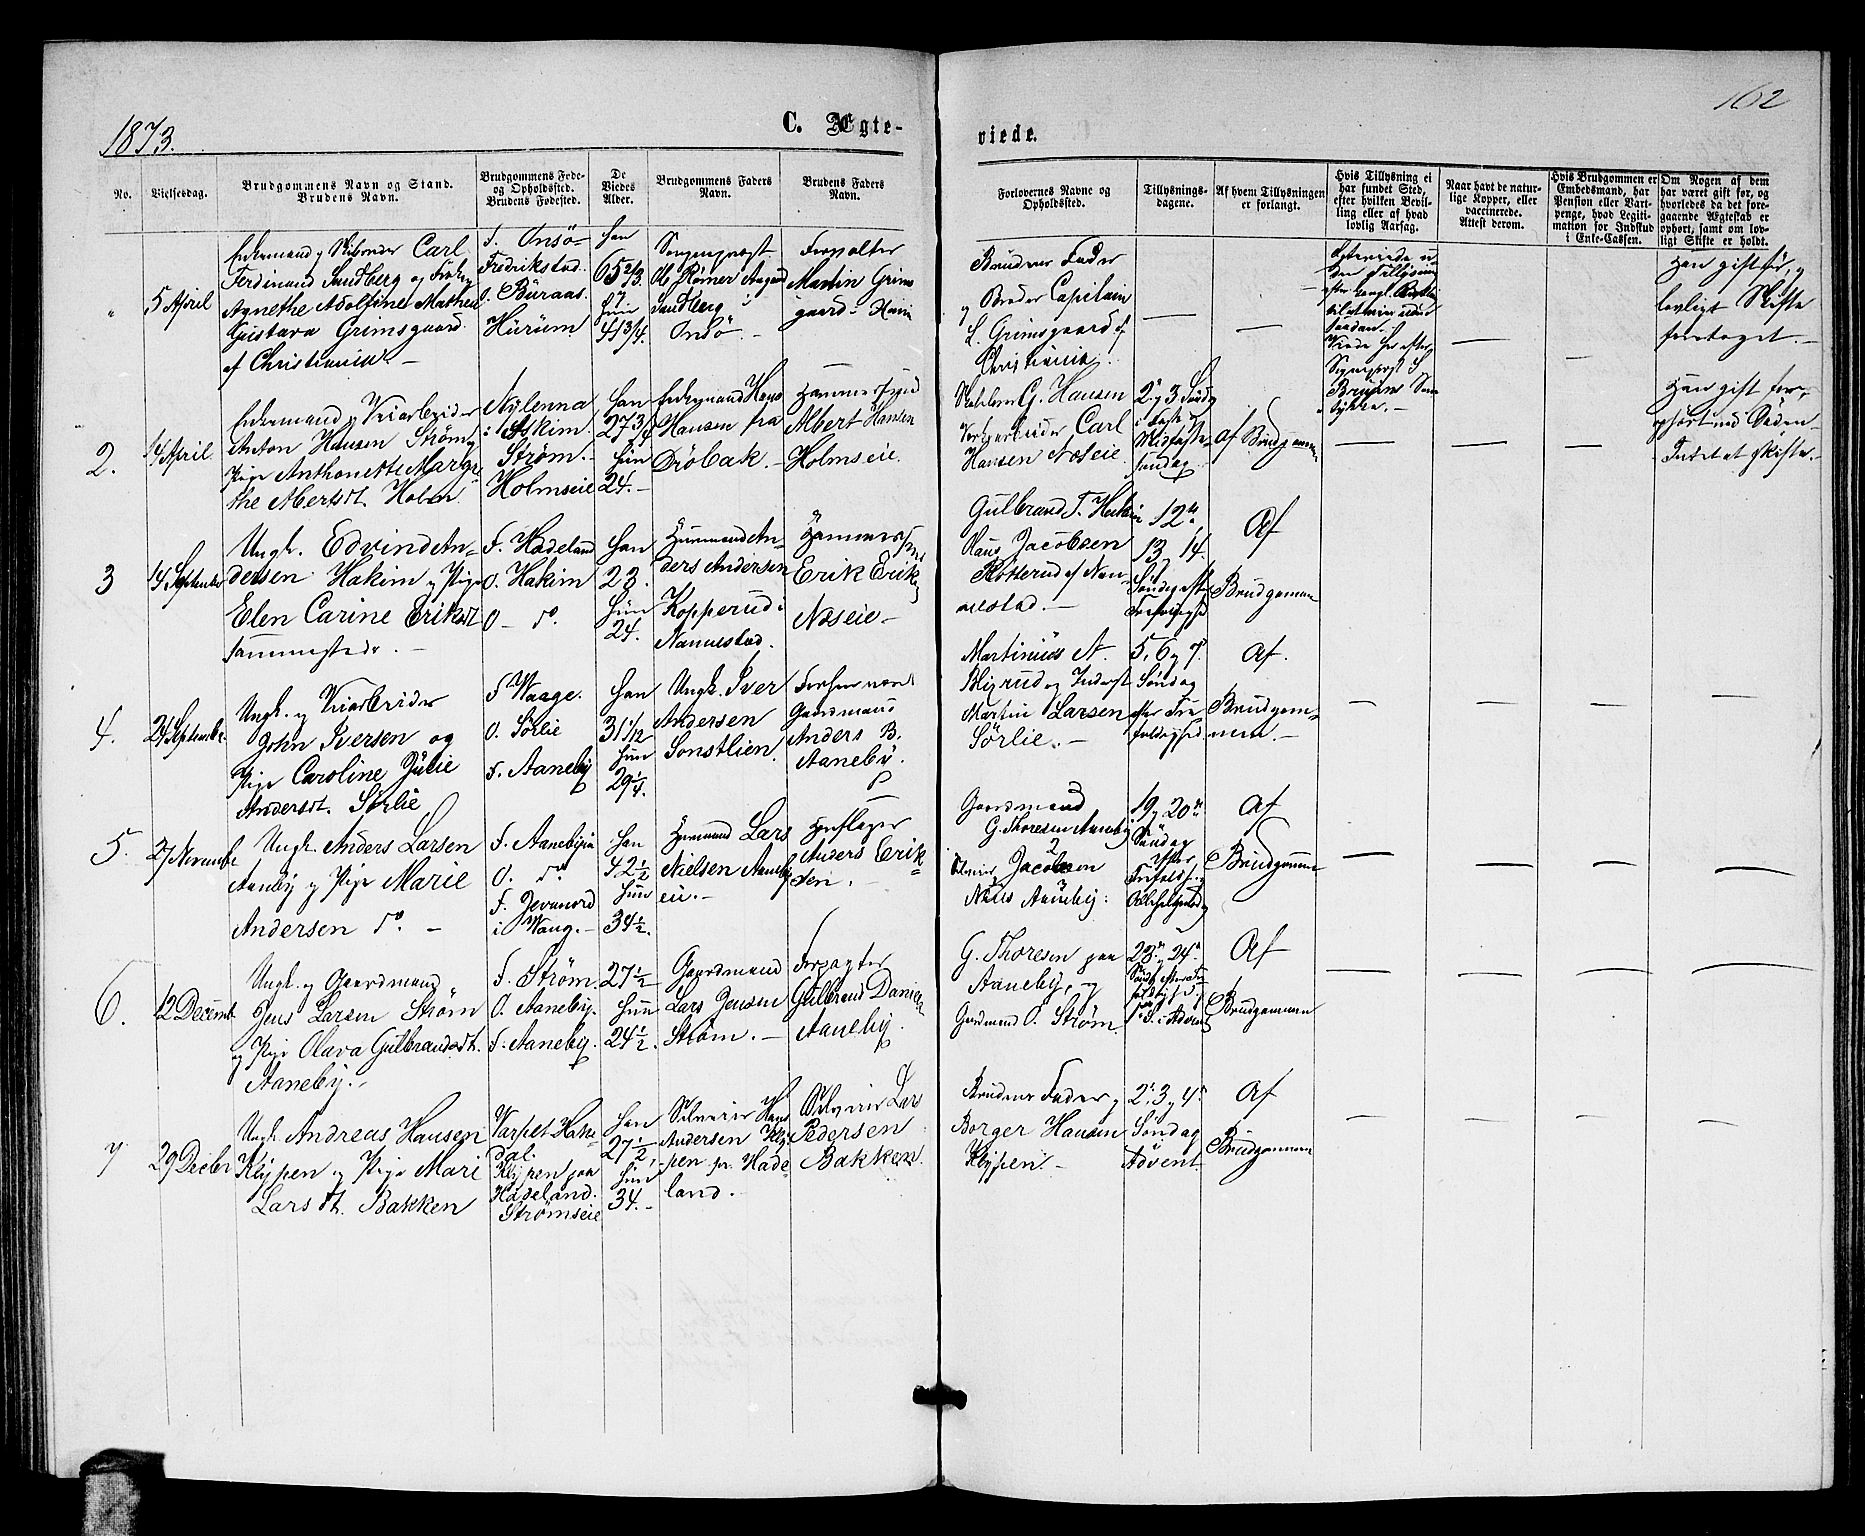 1873.
C. Ægte-
viede.
162
No.
Vielsesdag.
Brudgommens Navn og Stand.
Brudens Navn.
Brudgommens Føde-
og Opholdssted.
Brudens Fødested.
De
Viedes
Alder.
Brudgommens Faders
Navn.
Brudens Faders
Navn.
Forlovernes Navne og
Opholdssted.
Tillysnings-
dagene.
Af hvem Tillysningen
er forlangt.
Hvis Tillysning ei
har fundet Sted,
efter hvilken Bevil-
ling eller af hvad
lovlig Aarsag.
Naar havt de natur-
lige Kopper, eller
vaccinerede.
Attest derom.
Hvis Brudgommen er
Embedsmand, har
Pension eller Vart-
penge, hvad Legiti-
mation for Indskud
i Enke-Cassen.
Om Nogen af dem
har været gift før, og
hvorledes da det fore-
gaaende Ægteskab er
ophørt, samt om lov-
ligt Skifte er holdt.
"
5 April
Enkemand og Carl
Ferdinand Sandberg og
Agnethe Adolfine Mathea
Gustava Grimsgaard
af Christiania. -
F. Onsø
Fredrikstad.
Hurum
Han
65 2/3.
Hun
Sogneprest
Sandberg i
Onsø -
Forvalter
Martin Grims
gaard
Brudens Fader
og Broder Capitain
L. Grimsgaard af
Christiania.
Han gift før, og
lovligt Skifte
foretaget. -
2.
14 April
Enkemand og Veiarbeider
Anton Hansen Strøm og
Pige Anthonette Margre
the Albertsdt. Holm
i Askim.
Strøm. -
Holmseie
Han
27 3/4
Hun
24. -
Enkemand Hans
Hansen fra
Drøbak. -
Albert Hansen
Holmseie.
G. Hansen
Carl
Hansen Næseie
2 og 3 Søndag
i Faste og
Midfaste-
søndag
Af Brudgommen
Han gift før,
ophørt ved Døden
Intet at skifte. -
3
14 September
Ungk. Edvind An-
dersen Hakim og Pige
Elen Carine Eriksdt
sammesteds. -
F. Hadeland
O. Hakim
O - do.
Han
23.
Hun
24.
Huusmand An-
ders Andersen
Kopperud i
Nannestad.
Erik Erik
Næseie -
Gulbrand T. Hakim
Hans Jacobsen
Kotterud af Nan-
nestad. -
12te,
13 og 14.
Søndag efter
Trefoldighed
Af
Brudgommen
4.
21 September
Ungk. og Veiarbeider
John Iversen og
Pige Caroline Julie
Andersdt. Sørlie
F. Waage.
O. Sørlie
F. Aaneby
Han
31 1/12
Hun
29 1/4.
Ungk. Iver
Andersen
Sonstlien.
Forhenværende
Gaardmand
Anders B.
Aaneby.
Martinius A.
Bligrud og Inderst
Martin Larsen
Sørlie. -
5, 6 og 7.
Søndag
efter Tre
foldighed
Af.
Brudgom-
men. -
5.
27 Novembe
Ungk. Anders Larsen
Aaneby og Pige Marie
Andersen do. -
F. Aanebyeie
O. do.
F.
i Wang. -
Han
42 1/2
Hun
34 1/2.
Huusmand Lars
Nielsen Aaneby
eie. -
Anders Erik-
sen. -
Gaardmand
G. Thoresen Aaneby
Jacobsen
Aaneby.
19 og 20de
Søndag
efter
Trefoldh. og
Allehelgensdag
Af
Brudgommen
6.
12 Decemb.
Ungk. og Gaardmand
Jens Larsen Strøm
og Pige Olava Gulbrandsdt.
Aaneby. -
F. Strøm.
O. Aaneby.
F. Aaneby.
27 1/2
Hun
24 1/2.
Gaardmand
Lars Jensen
Strøm. -
Forpagter
Gulbrand Daniels
Aaneby.
G. Thoresen paa
Aaneby, og
Gaardmand O. Strøm.
23de og 24de
Søndg. efter Tre
1ste S. i Advent
Af
Brudgommen
7
29 Decbr
Ungk. Andreas Hansen
Klypen og Pige Mari
Larsdt. Bakken
Varpet Hake-
dal.
Klypen paa
Hadeland.
Strømseie
Han
27 1/2,
Hun
34. -
Selveier Hans
Andersen Kly
pen pr. Hade
land.
Selveier Lars
Pedersen
Bakken.
Brudens Fader og
Borger Hansen
Klypen -
2den, 3 og 4de
Søndag
Advent.
Af
Brudgommen